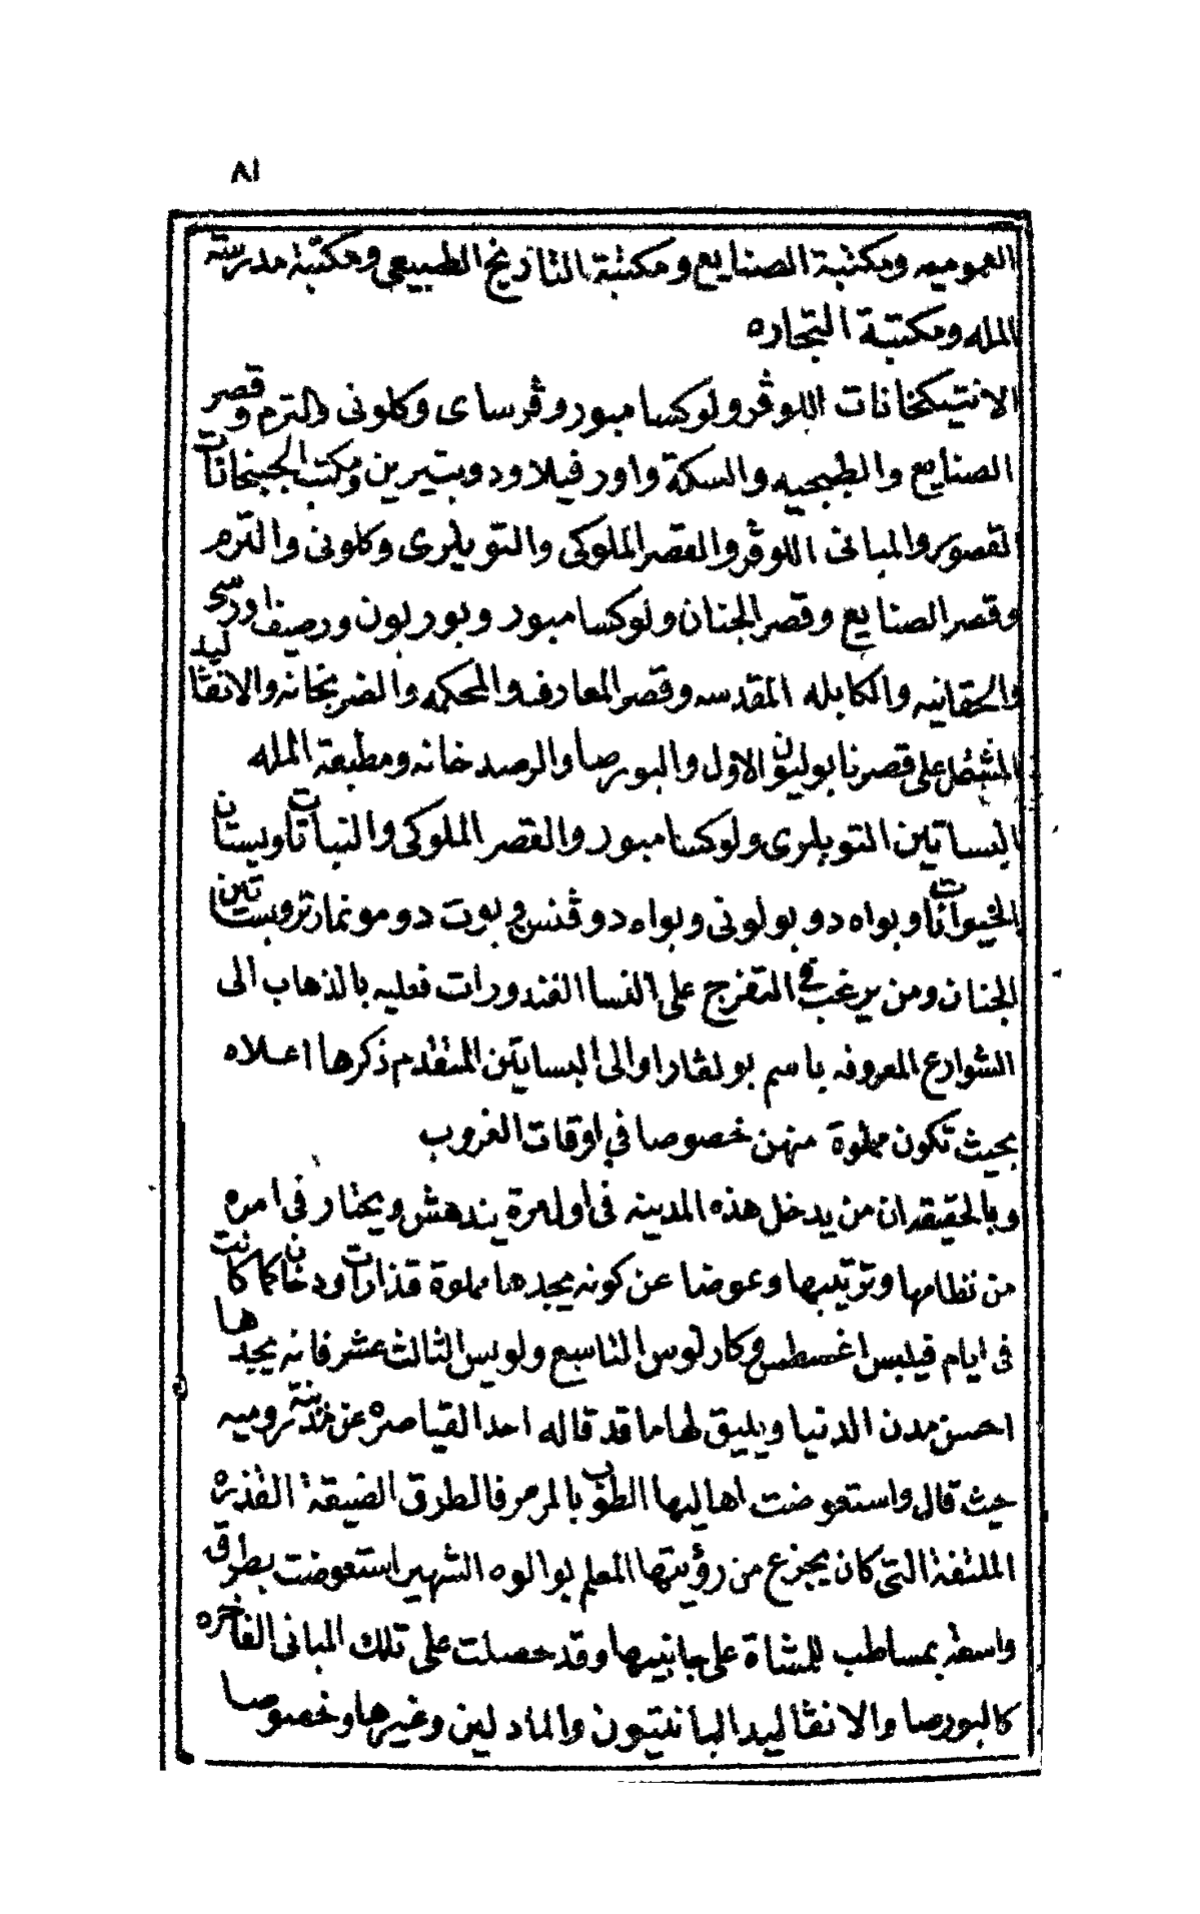 ٨١
العموميه ومكتبة الصنايع ومكتبة التاريخ الطبيعى ومكتبة مدرسة
المله ومكتبة التجاره
الانتيكخانات اللوڤر ولوكسامبور وڤرساى وكلونى والترم وقصر
الصنايع والطبجيه والسكة واورفيلا ودوبتيرين ومكتب الجبخانات
القصور والمبانى اللوڤر والقصر الملوكى والتويلرى وكلونى والترم
وقصر الصنايع وقصر الجنان ولوكسامبور وبوربون ورصيف اورسى
والحقانيه والكابله المقدسه وقصر المعارف والمحكمه والضربخانه والانڤاليد
المشتمل على قصر نابوليون الاول والبورصا والرصد خانه ومطبعة المله
البساتين التويلرى ولوكسامبور والقصر الملوكى والنباتات وبستان
الحيوانات وبواه دو بولونى وبواه دو ڤنسن وبوت دو مونمارتر وبستاتين
الجنان ومن يرغب فى التفرج على النسا الغندورات فعليه بالذهاب الى
الشوارع المعروفه باسم بولڤارا والى البساتين المتقدم ذكرها اعلاه
بحيث تكون مملوة منهن خصوصا فى اوقات الغروب
وبالحقيقه ان من يدخل هذه المدينه فى اول مرة يندهش ويحتار فى امره
من نظامها وترتيبها وعوضا عن كونه يجدها مملوة قذارات ودخان كما كانت
فى ايام فيليس اغسطس وكارلوس التاسع ولويس الثالث عشر فانه يجدها
احسن مدن الدنيا ويليق لها ما قد قاله احد القياصره عن مدينة روميه
حيث قال واستعوضت اهاليها الطوب بالمرمر فالطرق الضيقة القذره
الملتفة التى كان يجزع من رؤيتها المعلم بوالوه الشهير استعوضت بطرق
واسعة بمساطب للمشاة على جانبيها وقد حصلت على تلك المبانى الفاخره
كالبورصا والانڤاليد البانتيون والمادلين وغيرها وخصوصا